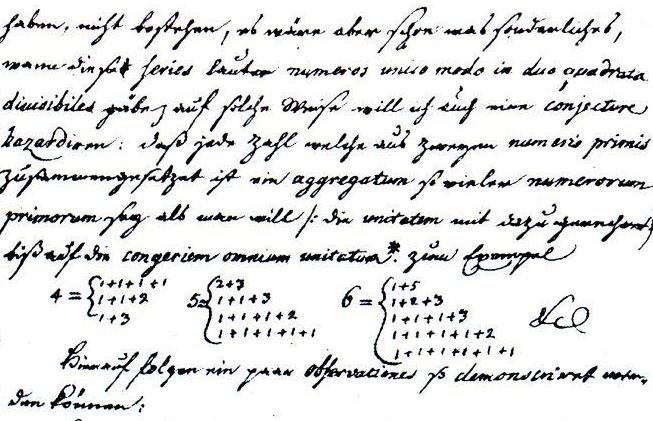 haben, nicht bestehen, es wäre aber schon was sonderliches,
wann diese series lauter numeros unico modo in duo quadrata
divisibiles gäbe; auf solche Weise will ich auch eine conjecture
hazardiren: daß jede Zahl welche aus zweyen numeris primis
zusammengesetzet ist ein aggregatum so vieler numerorum
primorum sey als man will /: die unitatem mit dazu gerechnet :/
biß auf die congeriem omnium unitatum*. zum Exempel
1+1+1+1 2+3 1+5
4 = { 1+1+2 5 = { 1+1+3 6 = { 1+2+3
1+3 1+1+1+2 1+1+1+3 &c
1+1+1+1+1 1+1+1+1+2
1+1+1+1+1+1
Hierauf folgen ein paar observationes so demonstriret wer-
den können: